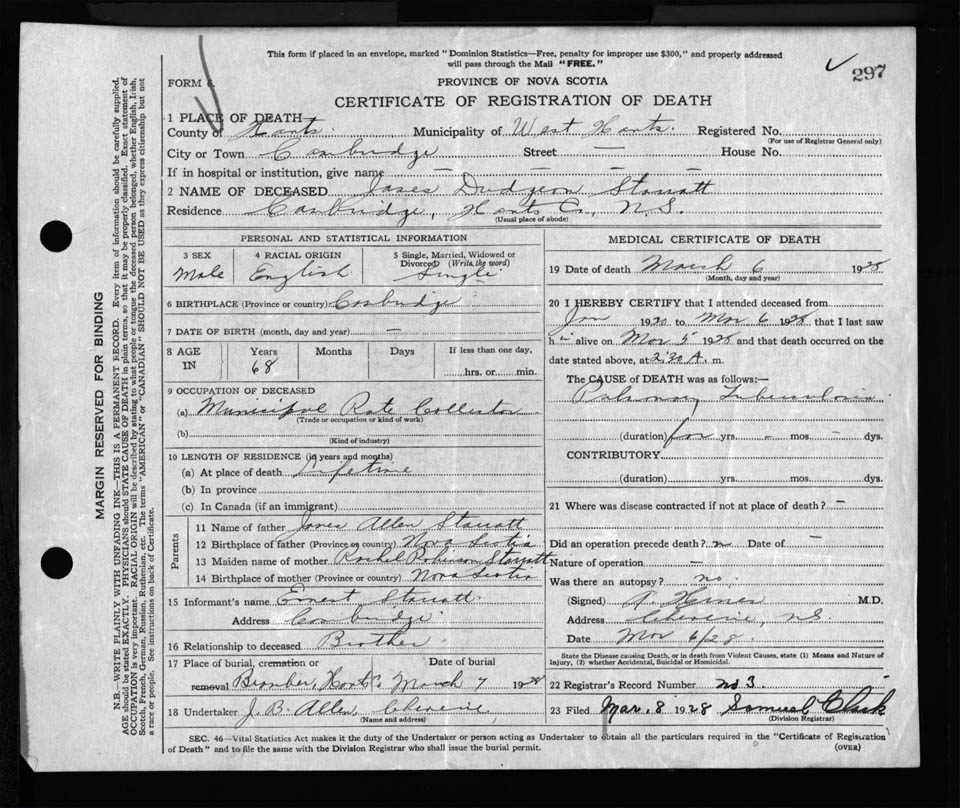 This form if placed in an envelope, marked "Dominion Statistics—Free, penalty for improper use $300," and properly addressed
will pass through the Mail "FREE."
297
FORM 6.
PROVINCE OF NOVA SCOTIA
CERTIFICATE OF REGISTRATION OF DEATH
1 PLACE OF DEATH—
County of Hants. Municipality of West Hants. Registered No.
(For use of Registrar General only)
City or Town Cambridge Street — House No.
If in hospital or institution, give name — — —
2 NAME OF DECEASED James Dudgeon Starratt
Residence Cambridge, Hants Co., N.S.
(Usual place of abode)
PERSONAL AND STATISTICAL INFORMATION
3 SEX 4 RACIAL ORIGIN 5 Single, Married, Widowed or
Divorced (Write the word)
Male English Single
6 BIRTHPLACE (Province or country) Cambridge
7 DATE OF BIRTH (month, day and year) —
8 AGE IN Years Months Days If less than one day,
68 hrs. or min.
9 OCCUPATION OF DECEASED
(a) Municipal Rate Collector
(Trade or occupation or kind of work)
(b)
(Kind of industry)
10 LENGTH OF RESIDENCE (in years and months)
(a) At place of death Lifetime
(b) In province
(c) In Canada (if an immigrant)
Parents
11 Name of father James Allen Starratt
12 Birthplace of father (Province or country) Nova Scotia
13 Maiden name of mother Rachel Robinson Starratt
14 Birthplace of mother (Province or country) Nova Scotia
15 Informant's name Ernest Starratt
Address Cambridge
16 Relationship to deceased Brother
17 Place of burial, cremation or Date of burial
removal Hants Co. March 7 1928
18 Undertaker J. B. Allen, Cheverie,
(Name and address)
MEDICAL CERTIFICATE OF DEATH
19 Date of death March 6 1928
(Month, day and year)
20 I HEREBY CERTIFY that I attended deceased from
Jan 1920 to Mar 6 1928 that I last saw
h im alive on Mar 5 1928 and that death occurred on the
date stated above, at 2:30 A. m.
The CAUSE of DEATH was as follows:—
Pulmonary Tuberculosis
(duration) yrs. - mos. - dys.
CONTRIBUTORY
(duration) yrs. mos. dys.
21 Where was disease contracted if not at place of death? —
Did an operation precede death? no Date of —
Nature of operation —
Was there an autopsy? no.
(Signed) M.D.
Address Cheverie, N.S.
Date Mar 6/28.
State the Disease causing Death, or in death from Violent Causes, state (1) Means and Nature of
Injury, (2) whether Accidental, Suicidal or Homicidal.
22 Registrar's Record Number no 3.
23 Filed Mar. 8 1928 Samuel Clark
(Division Registrar)
SEC. 46—Vital Statistics Act makes it the duty of the Undertaker or person acting as Undertaker to obtain all the particulars required in the "Certificate of Registration
of Death" and to file the same with the Division Registrar who shall issue the burial permit.
(OVER)
MARGIN RESERVED FOR BINDING
N.B.—WRITE PLAINLY WITH UNFADING INK—THIS IS A PERMANENT RECORD. Every item of information should be carefully supplied.
AGE should be stated EXACTLY. PHYSICIANS should STATE CAUSE OF DEATH in plain terms, so that it may be properly classified. Exact statement of
OCCUPATION is very important. RACIAL ORIGIN will be described by stating to what people or tongue the deceased person belonged, whether English, Irish,
Scotch, French, German, Russian, Ruthenian, etc. The terms "AMERICAN" or "CANADIAN" SHOULD NOT BE USED as they express citizenship but not
a race or people. See instructions on back of Certificate.